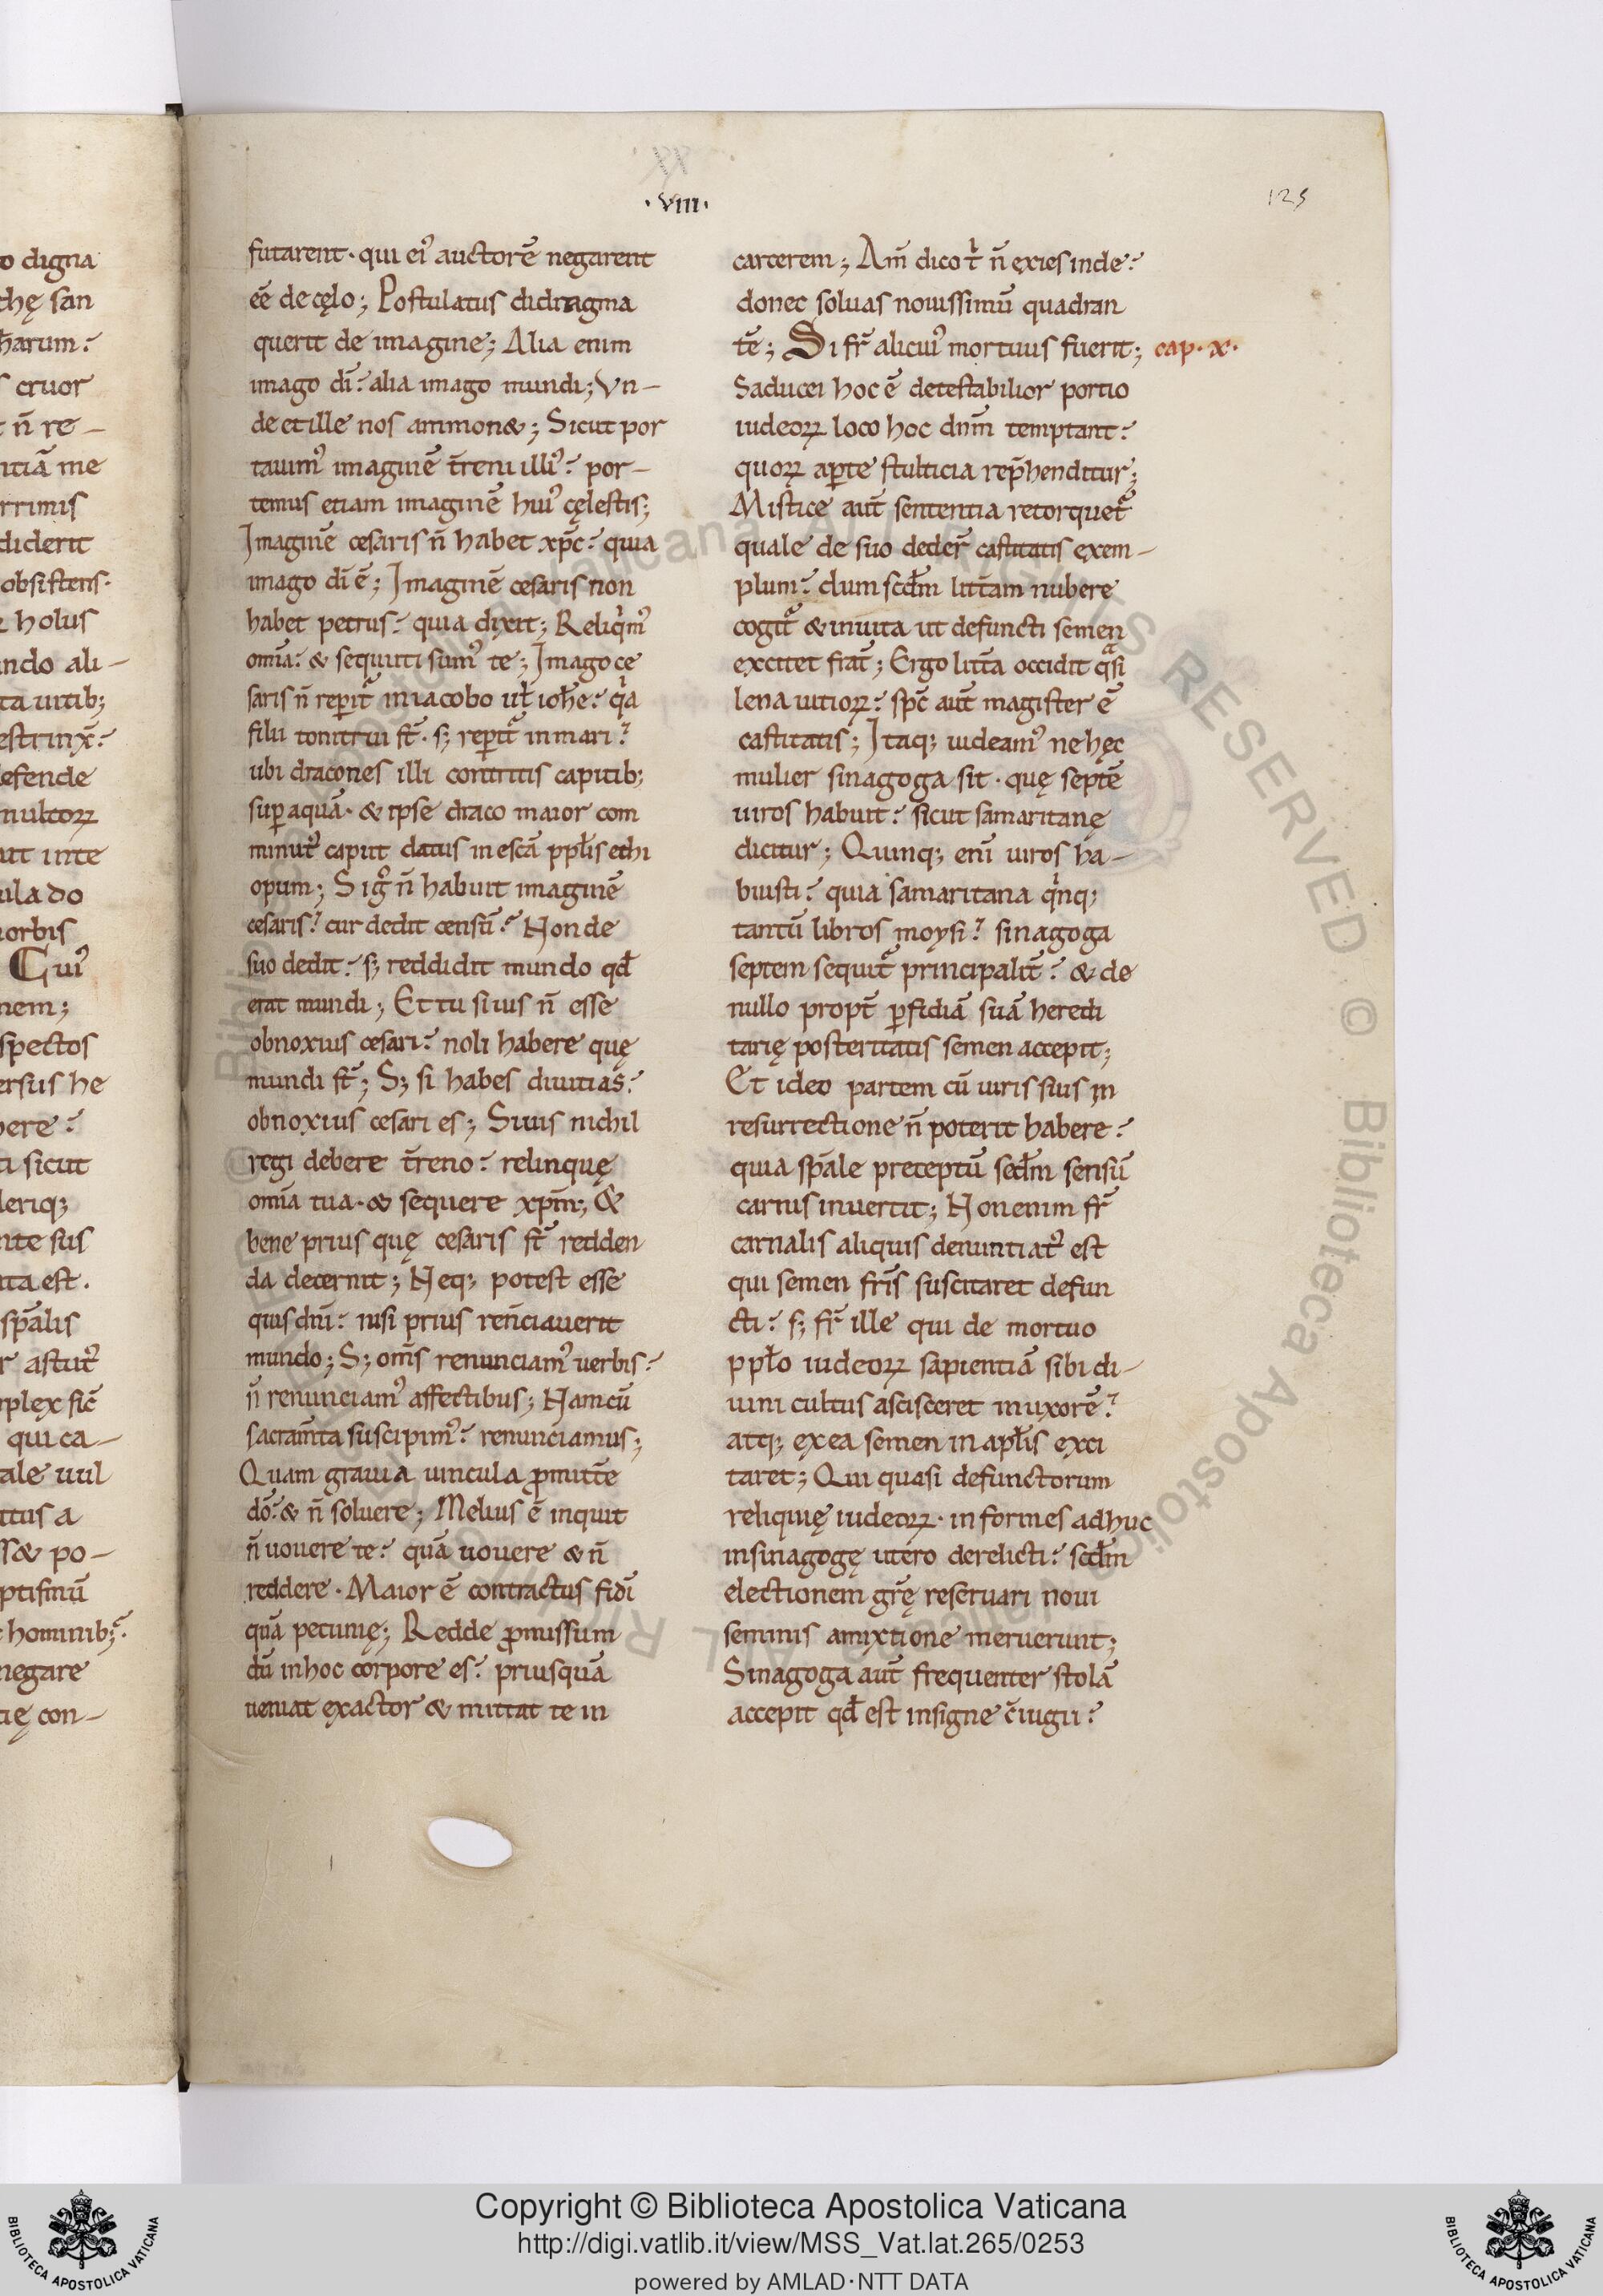 xx
·VIII·
125
o digna
chę san
harum?
s cruor
t n̄ re-
ntiā me
rrimis
diderit
obsistens·
& holus
ando ali-
ta uitib;
estrinx̄?
defende
multoꝝ
att inte
ula do
morbis
Cui᾽
nem;
spectos
ersus he
bere?
ti sicut
leriq;
nte sus
ita est.
sp̄alis
r astut᾽
plex sic̄
qui ca-
ale uul
itus a
ss& po-
ptismū
t hominib;?
negare
tię con-
futarent· qui ei᾽ auctorē negarent
eē de cęlo; Postulatus didragma
querit de imagine; Alia enim
imago dī? alia imago mundi; Vn-
de et ille nos ammon&; Sicut por
tauim᾽ imaginē t̄reni illi᾽? por-
temus etiam imaginē hui᾽ cęlestis;
Imaginē cesaris n̄ habet xp̄c? quia
imago dī ē; Imaginē cesaris non
habet petrus? quia dixit; Reliqⁱm᾽
om̄ia? & sequuti sum᾽ te; Imago ce
saris n̄ reꝑit᷑ in iacobo uł ioh̄e? qⁱa
filii tonitrui st̄· s; reꝑit᷑ in mari?
ubi dracones illi contritis capitib;
suꝑ aquā· & ipse draco maior com
minut᾽ caput datus in escā ppl̄is ethi
opum; Si gº n̄ habuit imaginē
cesaris? cur dedit censū? Non de
suo dedit? s; reddidit mundo qđ
erat mundi; Et tu si uis n̄ esse
obnoxius cesari? noli habere quę
mundi st̄; S; si habes diuitias?
obnoxius cesari es; Si uis nichil
regi debere t̄reno? relinquę
om̄ia tua· & sequere xp̄m; &
bene prius quę cesaris st̄ redden
da decernit; Neq; potest esse
quis dn̄i? nisi prius ren̄ciauerit
mundo; S; om̄s renunciam᾽ uerbis?
n̄ renunciam᾽ affectibus; Nam cū
sacram̄ta suscipim᾽? renunciamus;
Quam grauia uincula ꝓmitt̄e
dō? & n̄ soluere; Melius ē inquit
n̄ uouere te? quā uouere & n̄
reddere· Maior ē contractus fidī
quā pecunię; Redde ꝓmissum
dū in hoc corpore es? priusquā
ueniat exactor & mittat te in
carcerem; Am̄ dico tⁱ n̄ exies inde?
donec soluas nouissimū quadran
tē; Si fr̄ alicui᾽ mortuus fuerit; cap· x·
Saducei hoc ē detestabilior portio
iudeoꝝ loco hoc dn̄m temptant?
quoꝝ aꝑte stulticia rep̄henditur;
Mistice aut̄ sententia retorquet᷑
quale de suo deder̄ castitatis exem-
plum? dum scđm litt̄am nubere
cogit᷑ & inuita ut defuncti semen
excitet frat̄; Ergo litt̄a occidit qᵃsi
lena uitioꝝ? sp̄c aut̄ magister ē
castitatis; Itaq; uideam᾽ ne hęc
mulier sinagoga sit· quę septē
uiros habuit? sicut samaritanę
dicitur; Quinq; enī uiros ha-
buisti? quia samaritana qⁱnq;
tantū libros moysi? sinagoga
septem sequit᷑ principalit̄? & de
nullo propt̄ ꝑfidiā suā heredi
tarię posteritatis semen accepit;
Et ideo partem cū uiris suis in
resurrectione n̄ poterit habere?
quia sp̄ale preceptū scđm sensū
carnis inuertit; Non enim fr̄
carnalis aliquis denuntiat᾽ est
qui semen fr̄is suscitaret defun
cti? s; fr̄ ille qui de mortuo
ppl̄o iudeoꝝ sapientiā sibi di-
uini cultus ascisceret in uxorē?
atq; ex ea semen in apl̄is exci
taret; Qui quasi defunctorum
reliquię iudeoꝝ· informes adhuc
in sinagogę utero derelicti? scđm
electionem gr̄ę reseruari noui
seminis amixtione meruerunt;
Sinagoga aut̄ frequenter stolā
accepit qđ est insigne c̄iugii?
Copyright © Biblioteca Apostolica Vaticana
http://digi.vatlib.it/view/MSS_Vat.lat.265/0253
powered by AMLAD·NTT DATA
BIBLIOTECA APOSTOLICA VATICANA
BIBLIOTECA APOSTOLICA VATICANA